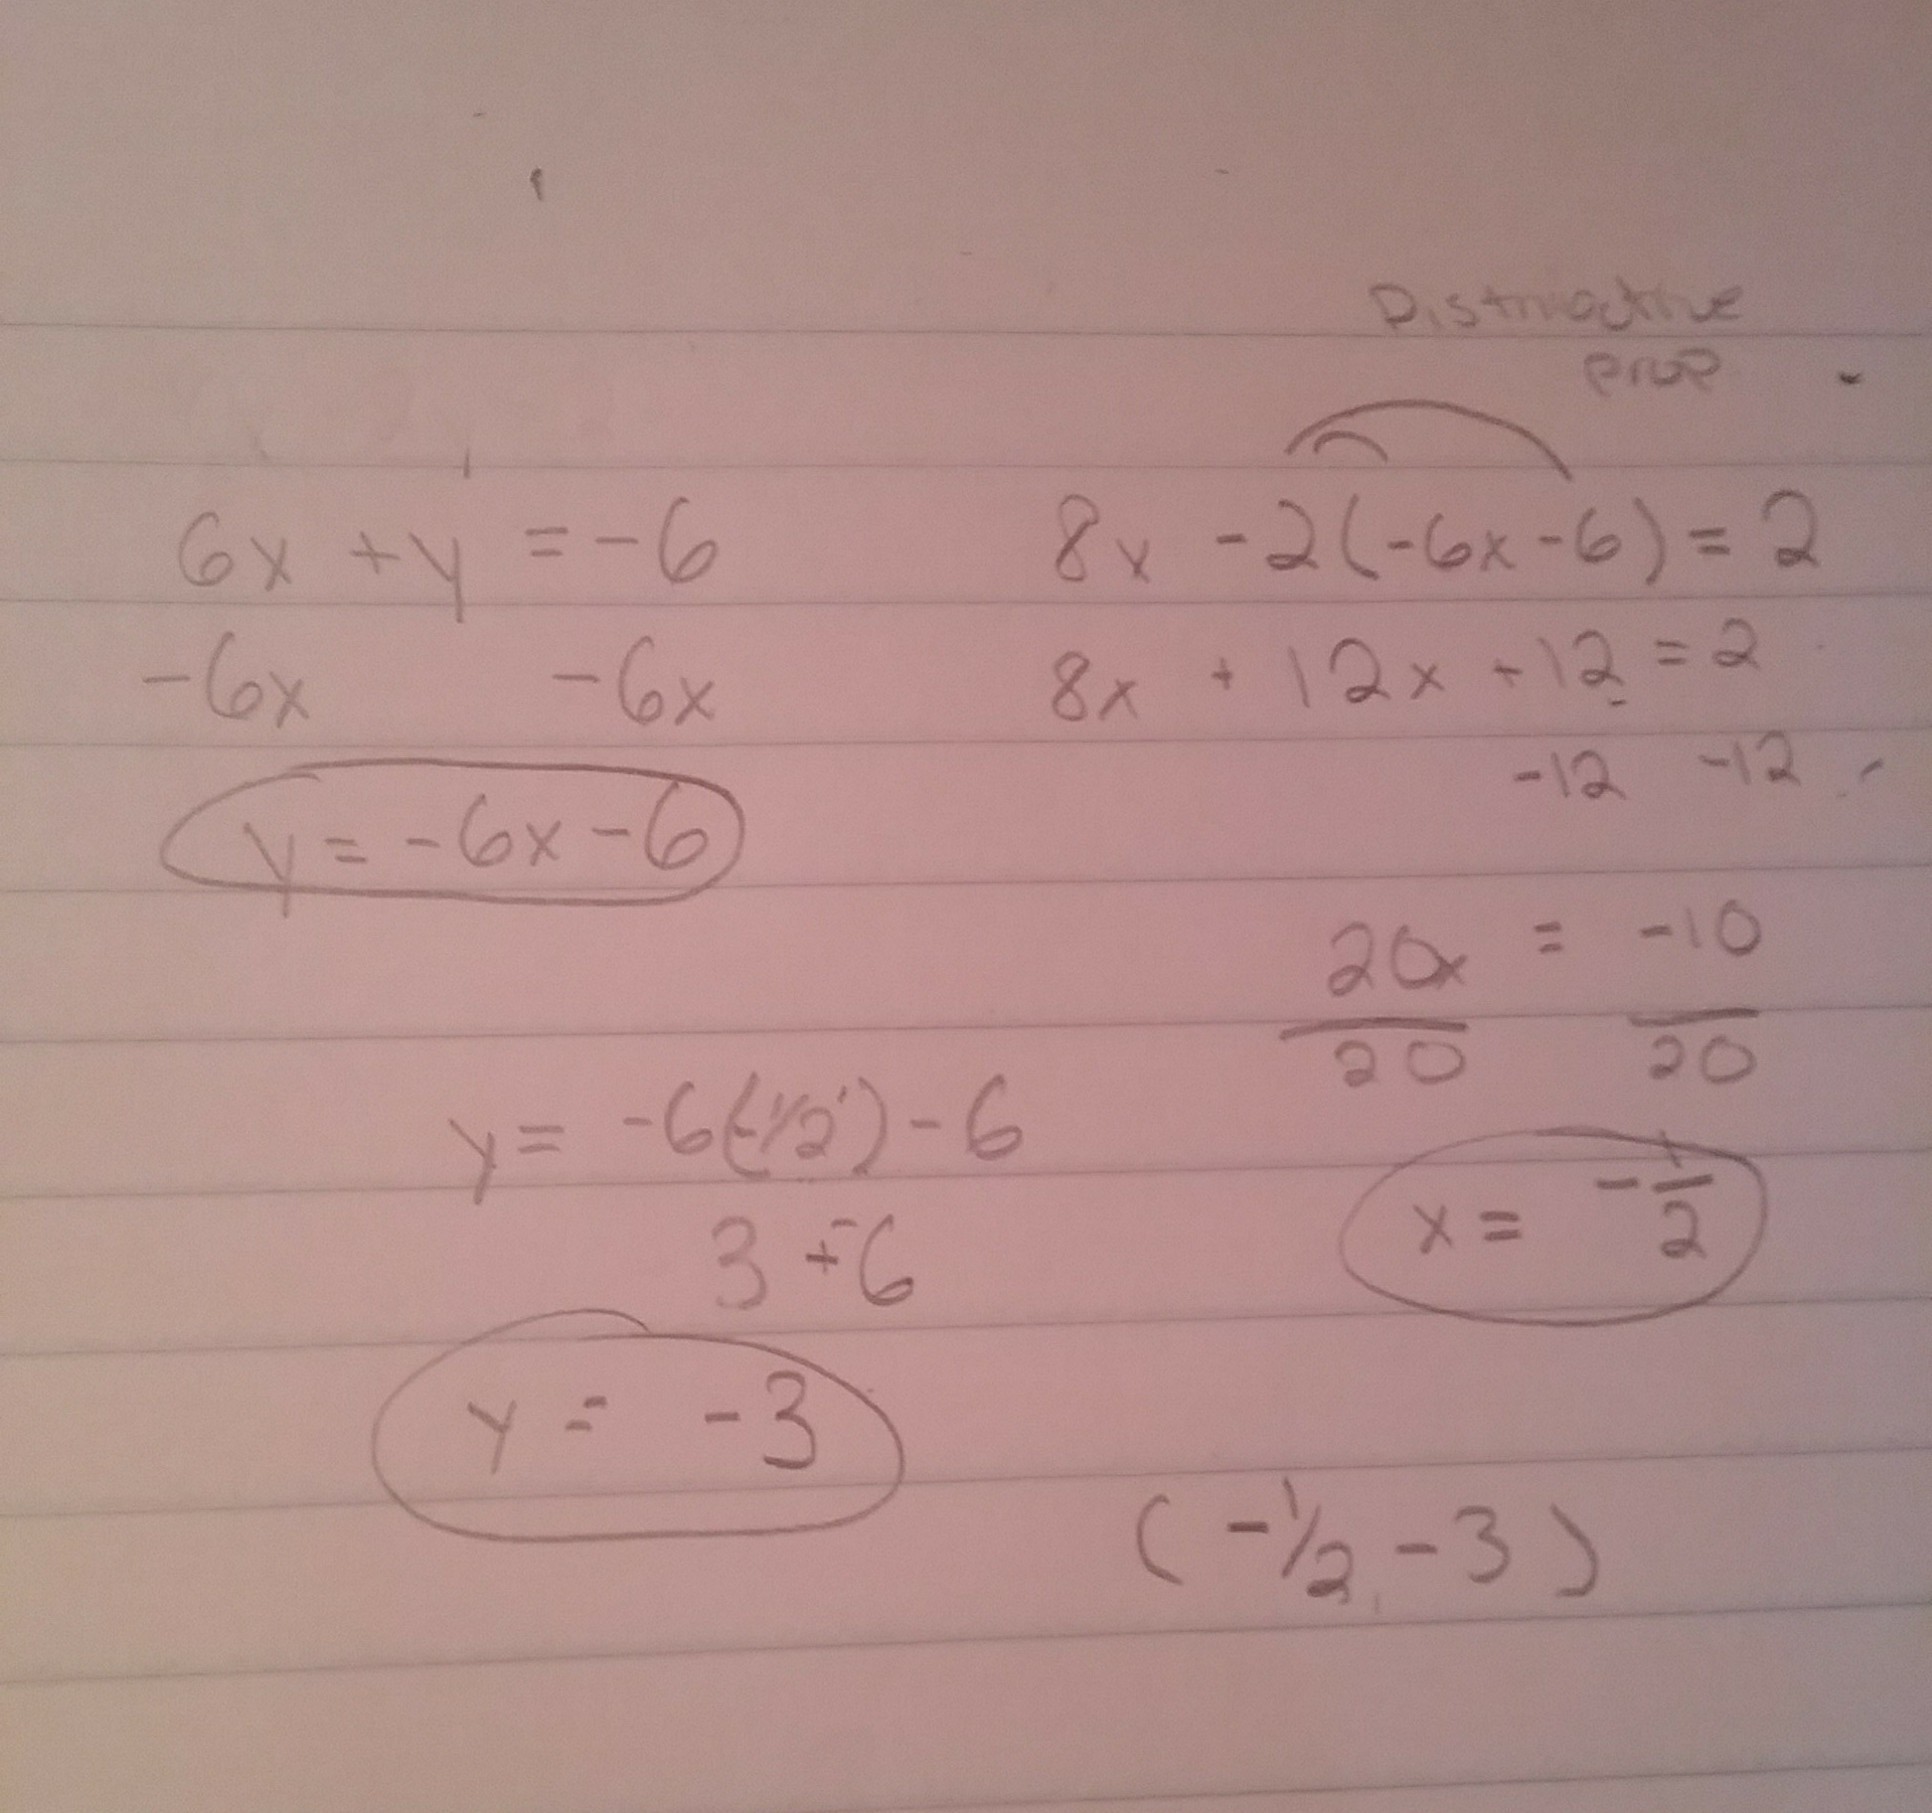 Distributive
prop
6x + y = -6
-6x -6x
y = -6x - 6
8x - 2(-6x - 6) = 2
8x + 12x + 12 = 2
-12 -12
20x = -10
20 20
x = -1/2
y = -6(-1/2) - 6
3 + -6
y = -3
(-1/2, -3)